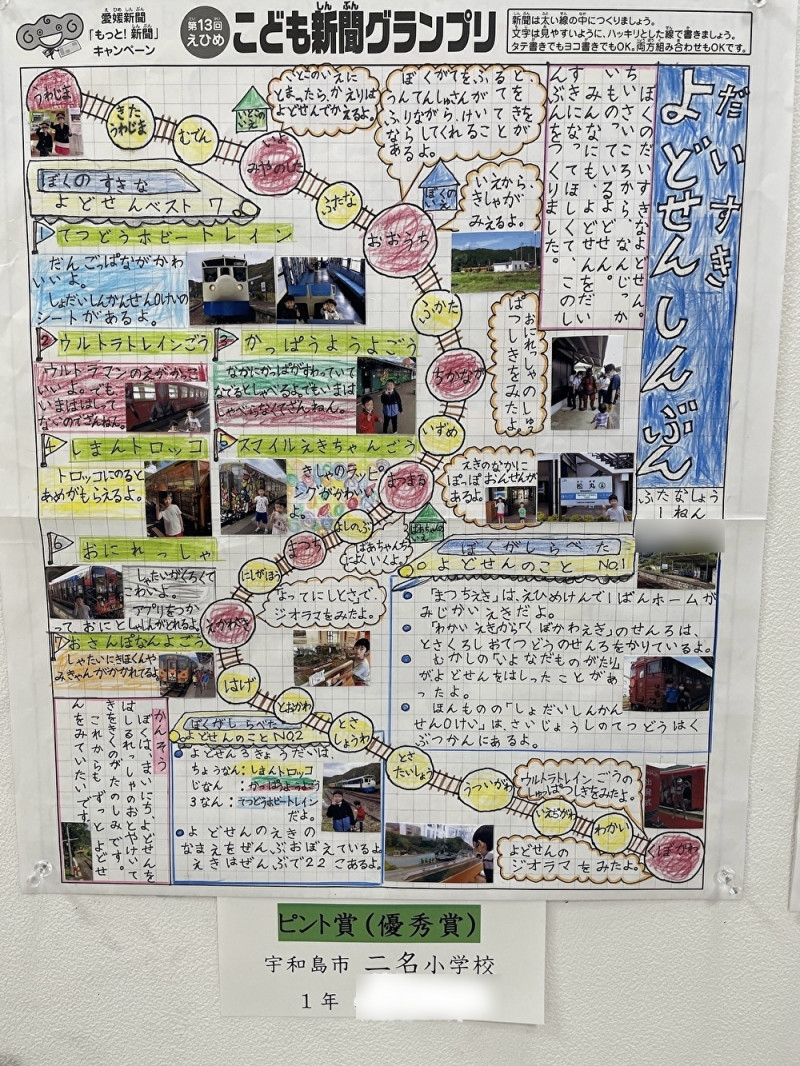 愛媛新聞
「もっと！新聞」
キャンペーン
第13回
えひめ
こども新聞グランプリ
新聞は太い線の中につくりましょう。
文字は見やすいように、ハッキリとした線で書きましょう。
タテ書きでもヨコ書きでもOK。両方組み合わせもOKです。
だいすき
よどせんしんぶん
ふたなしょう
1ねん
ぼくのだいすきなよどせん。
ちいさいころから、なんじっか
いものっているよどせん。
みんなにも、よどせんをだい
すきになってほしくて、このし
んぶんをつくりました。
うわじま
きた
うわじま
むでん
いよ
みやのした
ふたな
おおうち
ふかた
ちかなが
いずめ
まつまる
よしのぶ
まつち
にしがほう
えかがき
はげ
とおかわ
とさ
しょうわ
とさ
たいしょう
うついがわ
いえぢがわ
わかい
くぼかわ
いとこの
いえ
いとこのいえに
とまったら、かえりは
よどせんでかえるよ。
ぼくがてをふると、
うんてんしゅさんがてを
ふりながら、けいてきを
ならしてくれることが
あるよ。
ぼくの
いえ
いえから、
きしゃが
みえるよ。
おにれっしゃのしゅっ
ぱつしきをみたよ。
えきのなかに
ぽっぽおんせんが
あるよ。
ばあちゃんの
いえ
ばあちゃんちに
よくいくよ。
「なってにしとさ」で、
ジオラマをみたよ。
ウルトラトレインごうの
しゅっぱつしきをみたよ。
よどせんの
ジオラマをみたよ。
ぼくのすきな
よどせんベスト7
1
てつどうホビートレイン
だんごっぱながかわ
いいよ。
しょだいしんかんせん0けいの
シートがあるよ。
2
ウルトラトレインごう
ウルトラマンのえがかっこ
いいよ。でも、
いまははしって
ないのでざんねん。
3
かっぱうようよごう
なかにかっぱがすわっていて
なでるとしゃべるよ。でもいまは
しゃべらなくてざんねん。
4
しまんトロッコ
トロッコにのると
あめがもらえるよ。
5
スマイルえきちゃんごう
きしゃのラッピ
ングがかわいい
よ。
6
おにれっしゃ
しゃたいがくろくて
こわいよ。
アプリをつか
って おにとしゃしんがとれるよ。
7
おさんぽなんよごう
しゃたいにきほくんや
みきゃんがかかれてるよ。
ぼくがしらべた
よどせんのこと No.1
「まつちえき」は、えひめけんで1ばんホームが
みじかいえきだよ。
「わかいえきから「くぼかわえき」のせんろは、
とさくろしおてつどうのせんろをかりているよ。
むかしの「いよなだものがたり」
がよどせんをはしったことがあ
ったよ。
ほんものの「しょだいしんかん
せん0けい」は、さいじょうしのてつどうはく
ぶつかんにあるよ。
ぼくがしらべた
よどせんのことNO.2
よどせん3きょうだいは、
ちょうなん：しまんトロッコ
じなん：かっぱうようよごう
3なん：てつどうホビートレイン
だよ。
よどせんのえきの
なまえをぜんぶおぼえているよ。
えきはぜんぶで22こあるよ。
かんそう
ぼくは、まいにち、よどせんを
はしるれっしゃのおとやけいて
きをきくのがたのしみです。
これからもずっとよどせ
んをみていたいです。
ピント賞（優秀賞）
宇和島市 二名小学校
1年